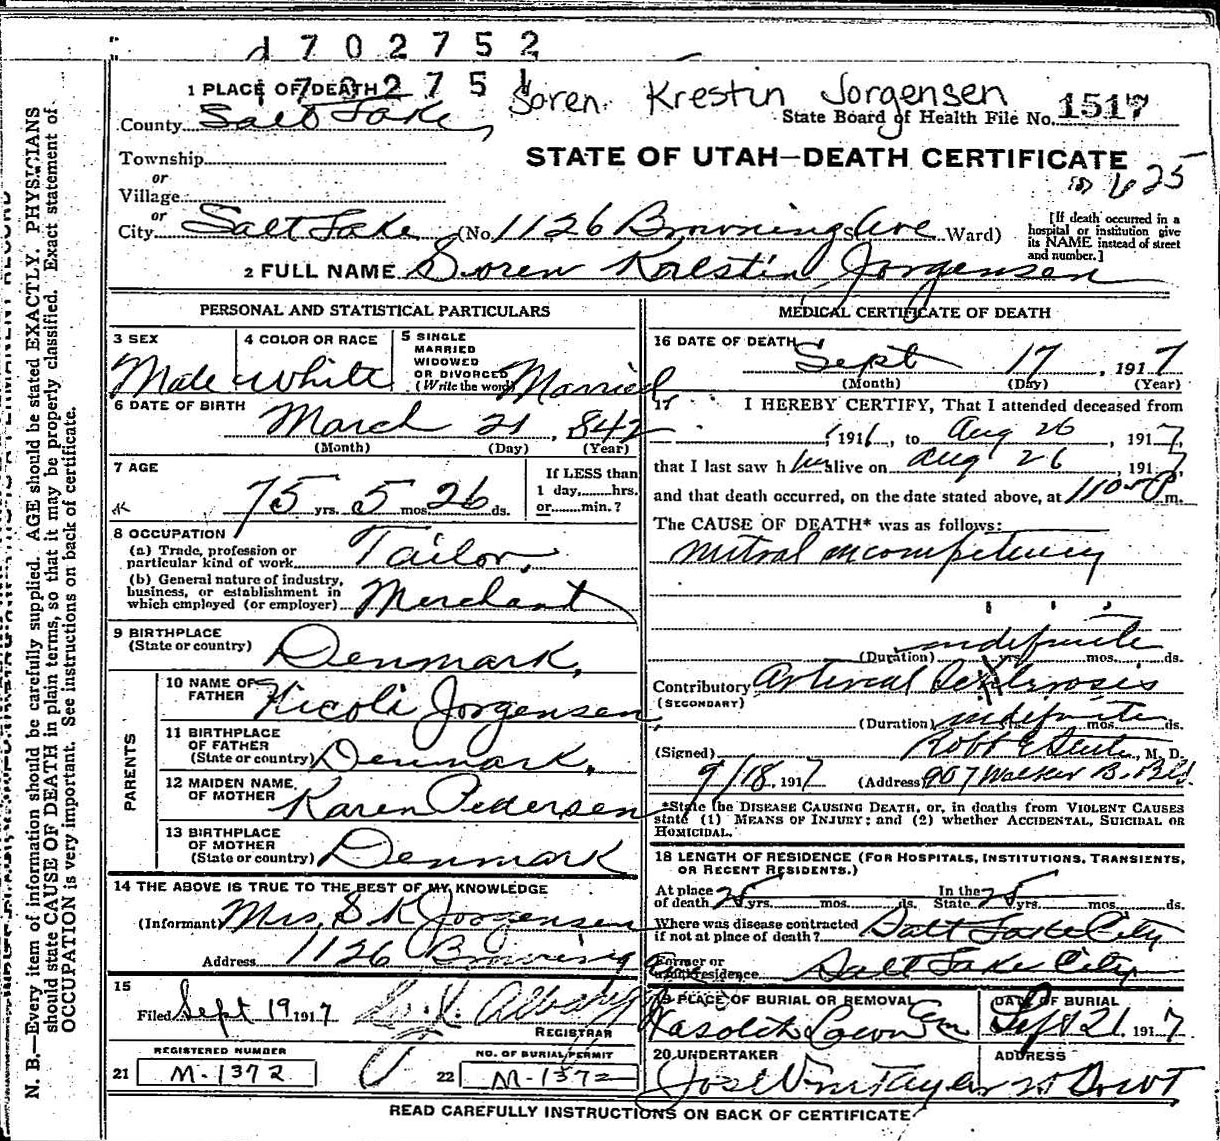 1702752
1702751
Soren Krestin Jorgensen
1 PLACE OF DEATH
County Salt Lake,
State Board of Health File No. 1517
Township
or
Village
or
City Salt Lake (No. 1126 Browning Ave Ward)
STATE OF UTAH—DEATH CERTIFICATE
625
[If death occurred in a
hospital or institution give
its NAME instead of street
and number.]
2 FULL NAME Soren Krestin Jorgensen
PERSONAL AND STATISTICAL PARTICULARS
3 SEX
Male
4 COLOR OR RACE
White
5 SINGLE
MARRIED
WIDOWED
OR DIVORCED
(Write the word) Married
6 DATE OF BIRTH
March 21, 842
(Month) (Day) (Year)
7 AGE
75 yrs. 5 mos. 26 ds.
If LESS than
1 day,......hrs.
or......min.?
8 OCCUPATION
(a) Trade, profession or
particular kind of work Tailor,
(b) General nature of industry,
business, or establishment in
which employed (or employer) Merchant
9 BIRTHPLACE
(State or country) Denmark,
PARENTS
10 NAME OF
FATHER Nicoli Jorgensen
11 BIRTHPLACE
OF FATHER
(State or country) Denmark,
12 MAIDEN NAME
OF MOTHER Karen Pedersen
13 BIRTHPLACE
OF MOTHER
(State or country) Denmark
14 THE ABOVE IS TRUE TO THE BEST OF MY KNOWLEDGE
(Informant) Mrs. S K Jorgensen
Address 1126 Browning Ave
15
Filed Sept 19 1917
REGISTRAR
REGISTERED NUMBER
21 M-1372
NO. OF BURIAL PERMIT
22 M-1372
MEDICAL CERTIFICATE OF DEATH
16 DATE OF DEATH
Sept 17, 1917
(Month) (Day) (Year)
17 I HEREBY CERTIFY, That I attended deceased from
1916, to Aug 26, 1917,
that I last saw him alive on Aug 26, 1917,
and that death occurred, on the date stated above, at 1105 P m.
The CAUSE OF DEATH* was as follows:
Mitral incompetency
(Duration) indefinite yrs. mos. ds.
Contributory Arterial Sclerosis
(SECONDARY)
(Duration) indefinite mos. ds.
(Signed) Robt , M. D.
9/18, 1917 (Address) 907 Walker B. Bld.
*State the DISEASE CAUSING DEATH, or, in deaths from VIOLENT CAUSES
state (1) MEANS OF INJURY; and (2) whether ACCIDENTAL, SUICIDAL OR
HOMICIDAL.
18 LENGTH OF RESIDENCE (FOR HOSPITALS, INSTITUTIONS, TRANSIENTS,
OR RECENT RESIDENTS.)
At place
of death 25 yrs. mos. ds.
In the
State 25 yrs. mos. ds.
Where was disease contracted
if not at place of death? Salt Lake City
Former or
usual residence Salt Lake City
19 PLACE OF BURIAL OR REMOVAL
Wasatch Lawn Cem
DATE OF BURIAL
Sept 21, 1917
20 UNDERTAKER
Jos Wm Taylor
ADDRESS
READ CAREFULLY INSTRUCTIONS ON BACK OF CERTIFICATE
N. B.—Every item of information should be carefully supplied. AGE should be stated EXACTLY. PHYSICIANS
should state CAUSE OF DEATH in plain terms, so that it may be properly classified. Exact statement of
OCCUPATION is very important. See instructions on back of certificate.